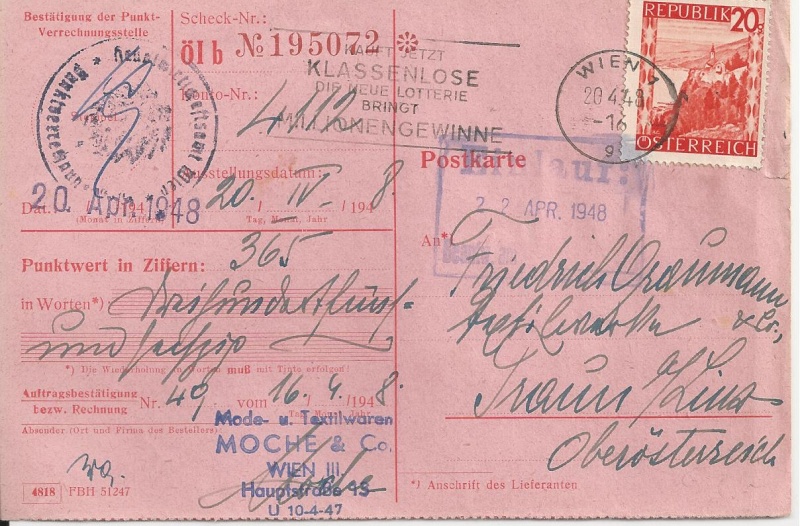 Bestätigung der Punkt-
Verrechnungsstelle
Scheck-Nr.:
öl b № 195072
Konto-Nr.:
4112
Ausstellungsdatum:
20. IV. 1948
Tag, Monat, Jahr
Dat. 194
(Monat in Ziffern)
20. Apr. 1948
KAUFT JETZT
KLASSENLOSE
DIE NEUE LOTTERIE
BRINGT
MILLIONENGEWINNE
WIEN 7
20.4.48
-16
9
REPUBLIK 20g
ÖSTERREICH
Postkarte
Einlauf:
22. APR. 1948
An*)
Friedrich Graumann
Textilwerke & Co.,
Traun / Linz
Oberösterreich
*) Anschrift des Lieferanten
Punktwert in Ziffern: 365
in Worten*) Dreihundertfünf-
und sechzig
*) Die Wiederholung in Worten muß mit Tinte erfolgen!
Auftragsbestätigung
bezw. Rechnung Nr. 49 vom 16. 4. 1948.
Tag, Monat, Jahr
Absender (Ort und Firma des Bestellers)
Mode- u. Textilwaren
MOCHE & Co.
WIEN III.
Hauptstraße 13
U 10-4-47
4818 FBH 51247